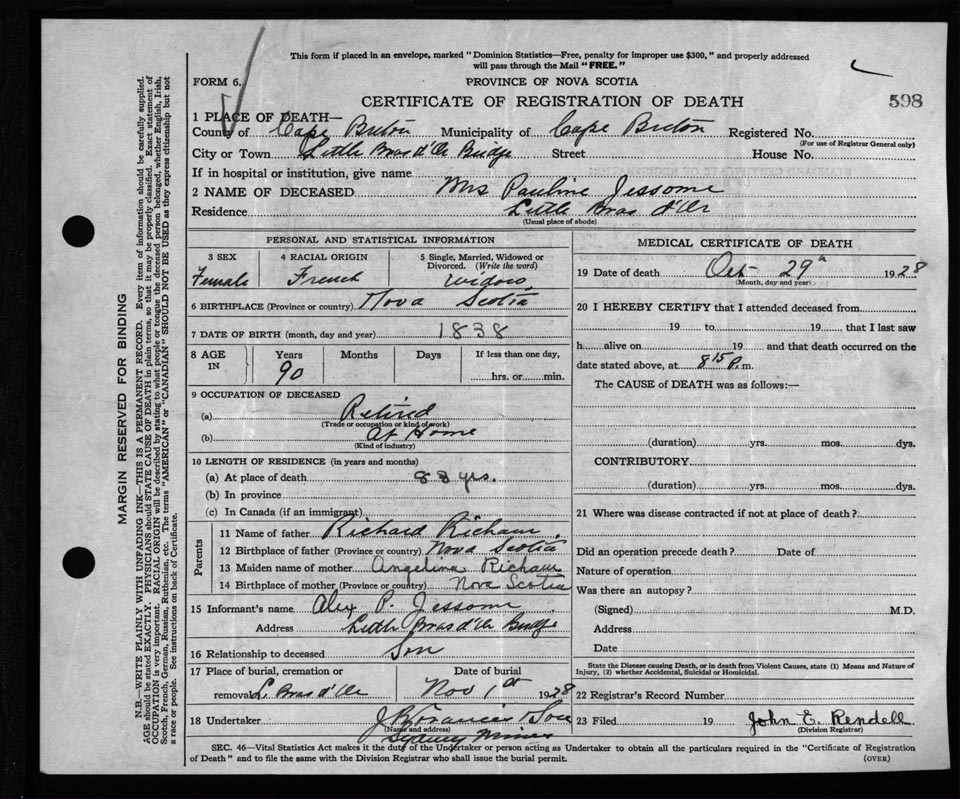 This form if placed in an envelope, marked "Dominion Statistics—Free, penalty for improper use $300," and properly addressed
will pass through the Mail "FREE."
FORM 6.
PROVINCE OF NOVA SCOTIA
CERTIFICATE OF REGISTRATION OF DEATH
598
1 PLACE OF DEATH—
County of Cape Breton Municipality of Cape Breton Registered No.
(For use of Registrar General only)
City or Town Little Bras d'Or Bridge Street House No.
If in hospital or institution, give name
2 NAME OF DECEASED Mrs Pauline Jessome
Residence Little Bras d'Or
(Usual place of abode)
PERSONAL AND STATISTICAL INFORMATION
3 SEX 4 RACIAL ORIGIN 5 Single, Married, Widowed or
Divorced. (Write the word)
Female French widow
6 BIRTHPLACE (Province or country) Nova Scotia
7 DATE OF BIRTH (month, day and year) 1838
8 AGE IN Years Months Days If less than one day,
90 hrs. or min.
9 OCCUPATION OF DECEASED
(a) Retired
(Trade or occupation or kind of work)
(b) At Home
(Kind of industry)
10 LENGTH OF RESIDENCE (in years and months)
(a) At place of death 88 yrs.
(b) In province
(c) In Canada (if an immigrant)
Parents
11 Name of father Richard
12 Birthplace of father (Province or country) Nova Scotia
13 Maiden name of mother Angelina
14 Birthplace of mother (Province or country) Nova Scotia
15 Informant's name Alex P. Jessome
Address Little Bras d'Or Bridge
16 Relationship to deceased Son
17 Place of burial, cremation or Date of burial
removal L. Bras d'Or Nov 1st 1928
18 Undertaker J Francis & Son
(Name and address)
Sydney Mines
MEDICAL CERTIFICATE OF DEATH
19 Date of death Oct 29th 1928
(Month, day and year)
20 I HEREBY CERTIFY that I attended deceased from
19 to 19 that I last saw
h alive on 19 and that death occurred on the
date stated above, at 8 15 P. m.
The CAUSE of DEATH was as follows:—
(duration) yrs. mos. dys.
CONTRIBUTORY
(duration) yrs. mos. dys.
21 Where was disease contracted if not at place of death?
Did an operation precede death? Date of
Nature of operation
Was there an autopsy?
(Signed) M.D.
Address
Date
State the Disease causing Death, or in death from Violent Causes, state (1) Means and Nature of
Injury, (2) whether Accidental, Suicidal or Homicidal.
22 Registrar's Record Number
23 Filed 19 John E. Rendell
(Division Registrar)
SEC. 46—Vital Statistics Act makes it the duty of the Undertaker or person acting as Undertaker to obtain all the particulars required in the "Certificate of Registration
of Death" and to file the same with the Division Registrar who shall issue the burial permit.
(OVER)
MARGIN RESERVED FOR BINDING
N.B.—WRITE PLAINLY WITH UNFADING INK—THIS IS A PERMANENT RECORD. Every item of information should be carefully supplied.
AGE should be stated EXACTLY. PHYSICIANS should STATE CAUSE OF DEATH in plain terms, so that it may be properly classified. Exact statement of
OCCUPATION is very important. RACIAL ORIGIN will be described by stating to what people or tongue the deceased person belonged, whether English, Irish,
Scotch, French, German, Russian, Ruthenian, etc. The terms "AMERICAN" or "CANADIAN" SHOULD NOT BE USED as they express citizenship but not
a race or people. See instructions on back of Certificate.